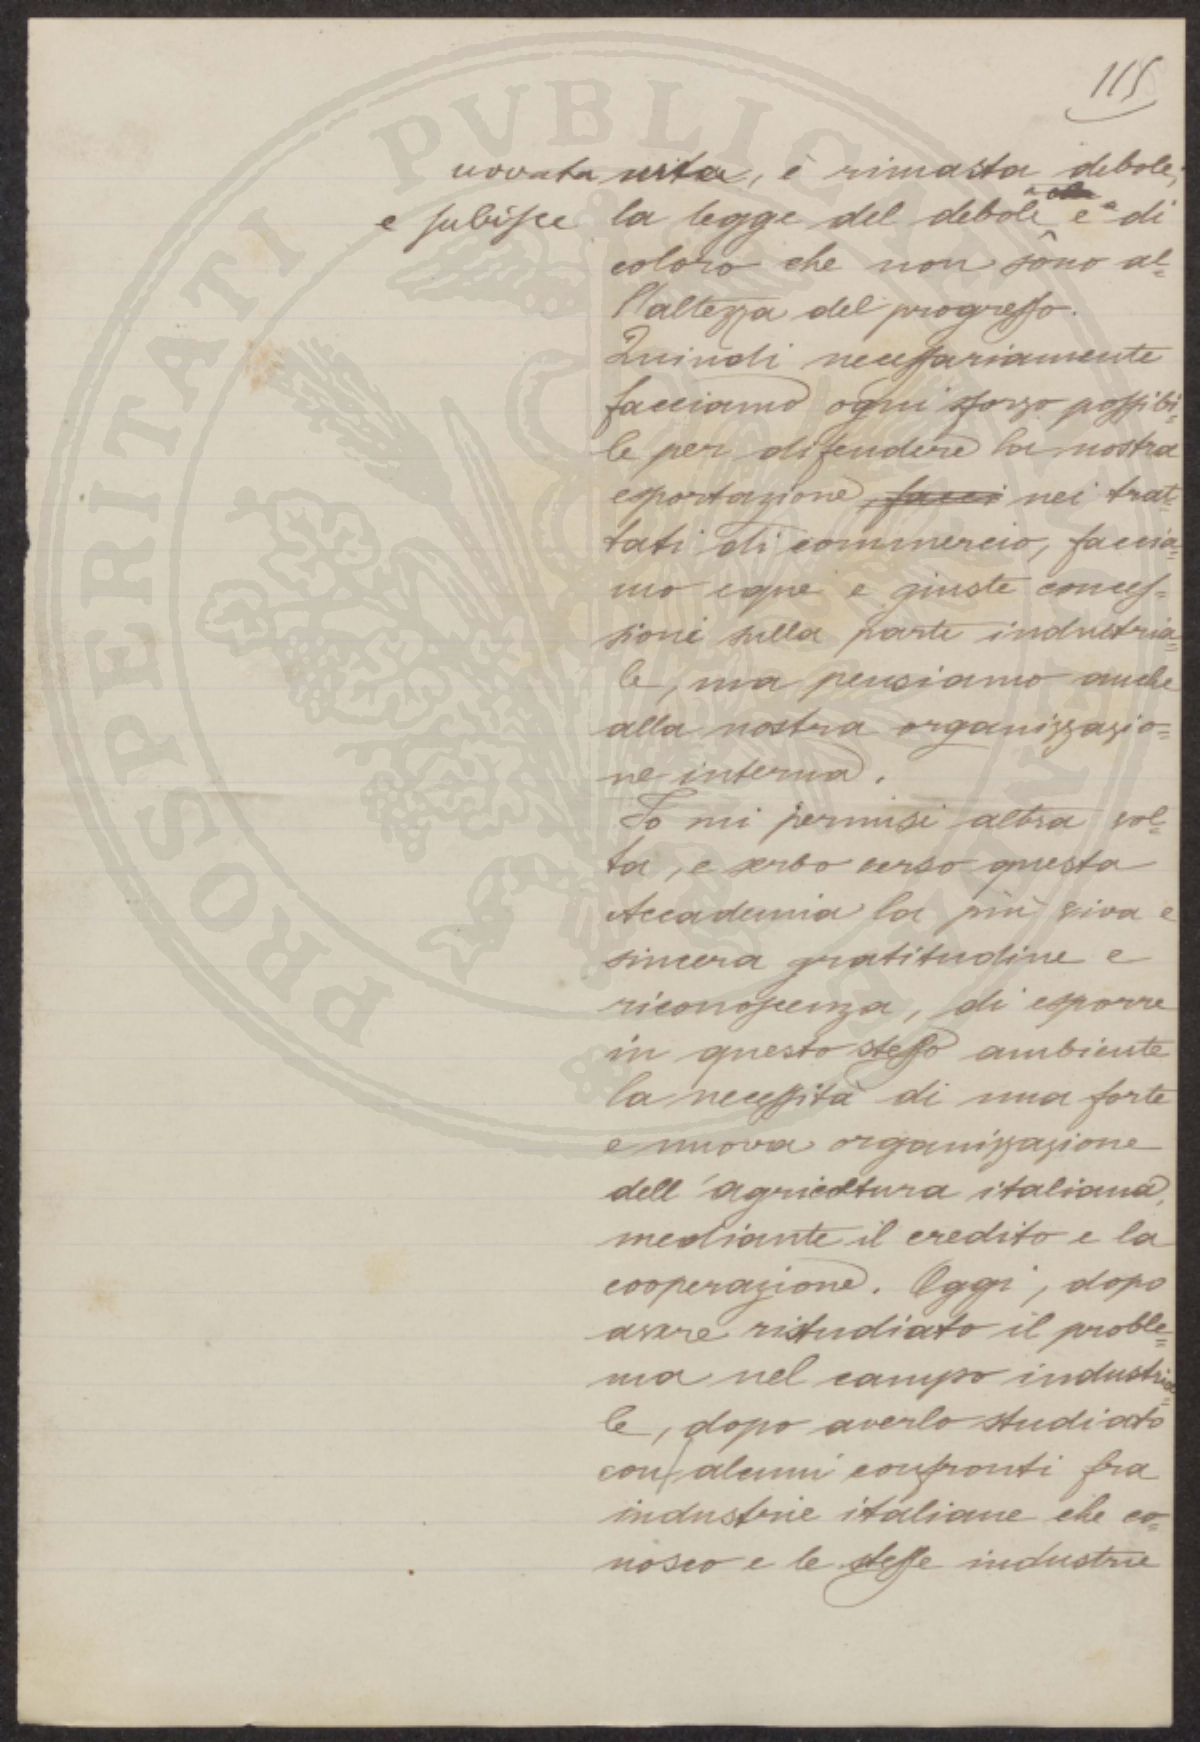 115
novata vita, è rimasta debole;
e subisce la legge del debole e di
coloro che non sono al=
l'altezza del progresso.
Quindi necessariamente
facciamo ogni sforzo possibi=
le per difendere la nostra
esportazione, facci nei trat=
tati di commercio, faccia=
mo eque e giuste conces=
sioni sulla parte industria=
le, ma pensiamo anche
alla nostra organizzazio=
ne interna.
Io mi permisi altra vol=
ta, e serbo verso questa
Accademia la più viva e
sincera gratitudine e
riconoscenza, di esporre
in questo stesso ambiente
la necessità di una forte
e nuova organizzazione
dell'agricoltura italiana,
mediante il credito e la
cooperazione. Oggi, dopo
avere ristudiato il proble=
ma nel campo industria=
le, dopo averlo studiato
con alcuni confronti fra
industrie italiane che co=
nosco e le stesse industrie
PROSPERITATI PVBLICAE